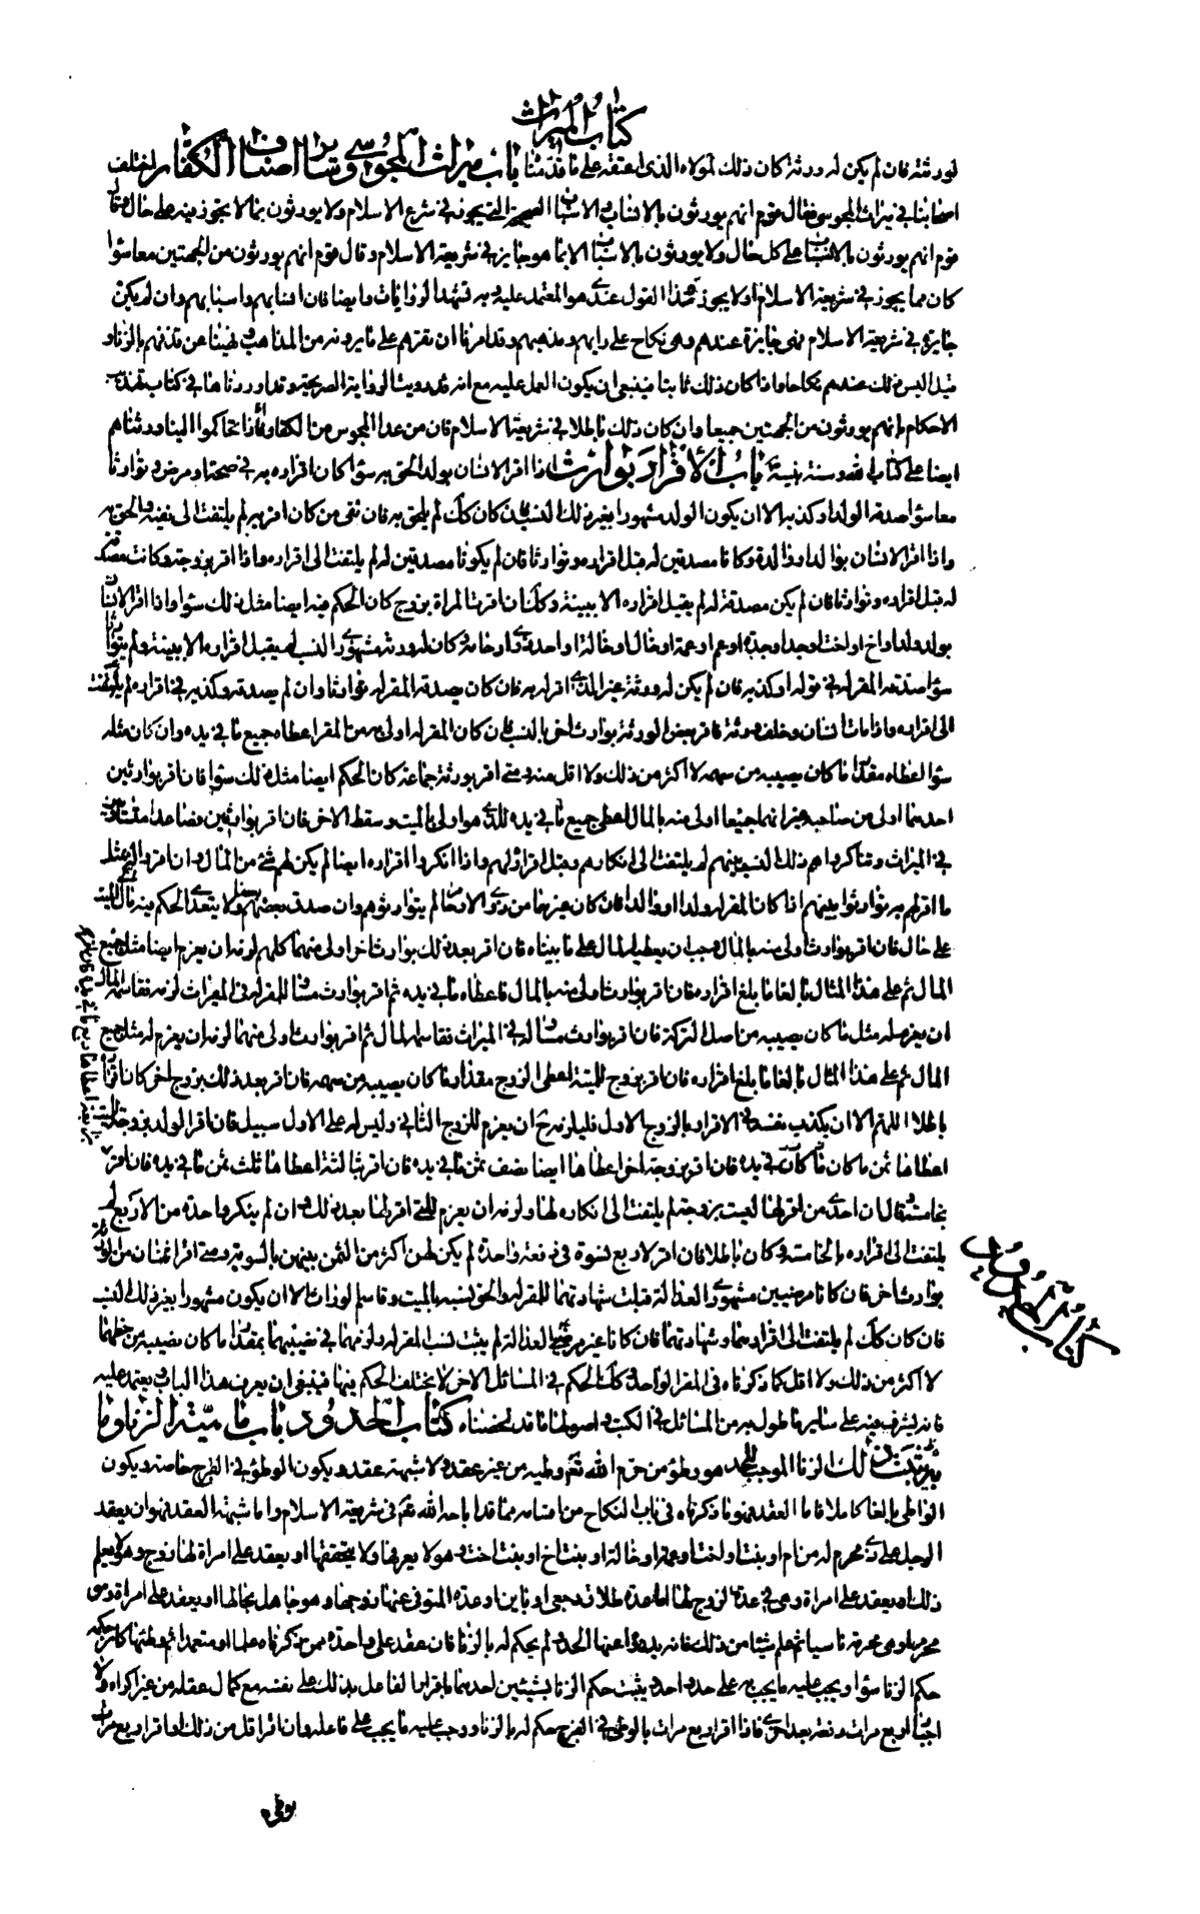 كتاب الميراث
لورثته فان لم يكن له ورثة كان ذلك لمولاه الذى اعتقه على ما قدمناه باب ميراث المجوسى وسائر اصناف الكفار اختلف
اصحابنا في ميراث المجوس فقال قوم انهم يورثون بالانساب والاسباب الصحيحة التي يجوز في شرع الاسلام ولا يورثون بما لا يجوز فيه على حال وقال
قوم انهم يورثون بالانساب على كل حال ولا يورثون بالاسباب الا بما هو جايز في شريعة الاسلام وقال قوم انهم يورثون من الجهتين معا سواء
كان مما يجوز في شريعة الاسلام او لا يجوز وهذا القول عندي هو المعتمد عليه وبه تشهد الروايات وايضا فان انسابهم واسبابهم وان لم يكن
جايزة في شريعة الاسلام فهى جايزة عندهم وهى نكاح على رايهم ومذهبهم وقد امرنا ان نقرهم على ما يرونه من المذاهب ونهينا عن قذفهم بالزنا و
قيل اليس ذلك عندهم نكاحا واذا كان ذلك ثابتا فينبغى ان يكون العمل عليه مع انه قد رويت الرواية الصريحة وقد اوردناها في كتاب تهذيب
الاحكام بانهم يورثون من الجهتين جميعا وان كان ذلك باطلا في شريعة الاسلام فان من عدا المجوس من الكفار فاذا تحاكموا الينا ورثناهم
ايضا على كتاب الله وسنة نبيه باب الاقرار بوارث اذا اقر الانسان بولد الحق به سواء كان اقراره به في صحته او مرضه وتوارثا
معا سواء صدقه الولد او كذبه الا ان يكون الولد مشهورا بغير ذلك النسب فان كان كك لم يلحق به فان نفى من كان اقر به لم يلتفت الى نفيه والحق به
واذا اقر الانسان بوالد او والدة وكانا مصدقين له قبل اقراره وتوارثا فان لم يكونا مصدقين له لم يلتفت الى اقراره واذا اقر بزوجة وكانت مصدقة
له قبل اقراره وتوارثا فان لم يكن مصدقة له لم يقبل اقراره الا ببينة وكك ان اقرت المراة بزوج كان الحكم فيه ايضا مثل ذلك سواء واذا اقر الانسان
بولد ولد او اخ او اخت او جد او جدة او عم او عمة او خال او خالة او احد ذوي ارحامه وكان له ورثة مشهوري النسب لم يقبل اقراره الا ببينة ولم يتوارثا
سواء صدقه المقر له في قوله او كذبه فان لم يكن له ورثة غير الذي اقر له به فان كان صدقه المقر له توارثا وان لم يصدقه وكذبه في اقراره لم يلتفت
الى اقراره واذا مات انسان وخلف ورثة فاقر بعض الورثة بوارث اخر بالنسب فان كان المقر له اولى به من المقر اعطاه جميع ما في يده وان كان مثله
سواء اعطاه مقدار ما كان يصيبه من سهمه لا اكثر من ذلك ولا اقل منه ومتى اقر بورثة جماعة كان الحكم ايضا مثل ذلك سواء فان اقر بوارثين
احدهما اولى من صاحبه غير انهما جميعا اولى منه بالمال اعطى جميع ما في يده للذي هو اولى بالميت وسقط الاخر فان اقر بوارثين فصاعدا متساويين
في الميراث وتناكروا هم ذلك النسب بينهم لم يلتفت الى انكارهم وقبل اقراره لهم واذا انكروا اقراره ايضا لم يكن لهم شئ من المال وان اقروا له بمثل
ما اقر لهم به توارثوا بينهم اذا كان المقر له ولدا او والدا فان كان غيرهما من ذوي الارحام لم يتوارثوا هم وان صدق بعضهم بعضا ولا يتعدى الحكم فيه مال الميت
على حال فان اقر بوارث اولى منه بالمال وجب ان يعطيه المال على ما بيناه فان اقر بعد ذلك بوارث اخر اولى منهما كلهم لزمه ان يغرم ايضا مثل جميع
المال ثم على هذا المثال بالغا ما بلغ اقراره فان اقر بوارث اولى منه بالمال فاعطاه ما في يده ثم اقر بوارث مساو للمقر له في الميراث لزمه
ان يغرم له مثل ما كان يصيبه من اصل التركة فان اقر بوارث مساو له في الميراث فقاسمه المال ثم اقر بوارث اولى منهما لزمه ان يغرم له مثل جميع
المال ثم على هذا المثال بالغا ما بلغ اقراره فان اقر بزوج للميتة اعطى الزوج مقدار ما كان يصيبه من سهمه فان اقر بعد ذلك بزوج اخر كان اقراره
باطلا اللهم الا ان يكذب نفسه في الاقرار بالزوج الاول فيلزمه ح ان يغرم للزوج الثاني وليس له على الاول سبيل فان اقر الولد بزوجة للميت
اعطاها ثمن ما كان في يده فان اقر بزوجة اخرى اعطاها ايضا نصف ثمن ما في يده فان اقر بثالثة اعطاها ثلث ثمن ما في يده فان اقر
بخامسة وقال ان احدى من اقر لها ليست بزوجة لم يلتفت الى انكاره لها ولزمه ان يغرم للتي اقر لها بعد ذلك وان لم ينكر واحدة من الاربع لم
يلتفت الى اقراره بالخامسة وكان باطلا فان اقر لاربع نسوة في دفعة واحدة لم يكن لهن اكثر من الثمن بينهن بالسوية ومتى اقر اثنان من الورثة
بوارث اخر فان كانا مرضيين مشهوري العدالة قبلت شهادتهما للمقر له والحق نسبه بالميت وقاسم الوراث الا ان يكون مشهورا بغير ذلك النسب
فان كان كك لم يلتفت الى اقرارهما وشهادتهما فان كانا غير مرضيي العدالة لم يثبت نسب المقر له ولزمهما في نصيبهما بمقدار ما كان نصيبه من حظهما
لا اكثر من ذلك ولا اقل كما ذكرناه في المقر الواحد وكك الحكم في المسائل الاخر لا يختلف الحكم فيها فينبغى ان يعرف هذا الباب ويعتمد عليه
فانه يشرف منه على ساير ما طول به من المسائل في الكتب واصولها ما قد لخصناه كتاب الحدود باب ماهية الزنا وما
به يثبت ذلك الزنا الموجب للحد هو وطؤ من حرم الله تعم وطيه من غير عقد ولا شبهة عقد ويكون الوطؤ في الفرج خاصة ويكون
الواطى بالغا كاملا فاما العقد فهو ما ذكرناه في باب النكاح من اقسامه مما قد اباحه الله تعم في شريعة الاسلام واما شبهة العقد فهو ان يعقد
الرجل على ذي محرم له من ام او بنت او اخت او عمة او خالة او بنت اخ او بنت اخت وهو لا يعرفها ولا يتحققها او يعقد على امراة لها زوج وهو لا يعلم
ذلك او يعقد على امراة وهى في عدة لزوج لها اما عدة طلاق رجعى او باين او عدة المتوفى عنها زوجها وهو جاهل بحالها او يعقد على امراة وهو
محرم او هى محرمة ناسيا ثم علم شيئا من ذلك فانه يدرؤا عنها الحد ولم يحكم له بالزنا فان عقد على واحدة ممن ذكرناه عالما او متعمدا ثم وطئها كان حكمه
حكم الزنا سواء ويجب عليه ما يجب به على حد واحد ويثبت حكم الزنا بشيئين احدهما باقرار الفاعل بذلك على نفسه مع كمال عقله من غير اكراه ولا
اجبار اربع مرات دفعة بعد اخرى فاذا اقر اربع مرات بالوطى في الفرج حكم له بالزنا ووجب عليه ما يجب على فاعله وان اقر اقل من ذلك او اقر اربع مرات
كتاب الحدود